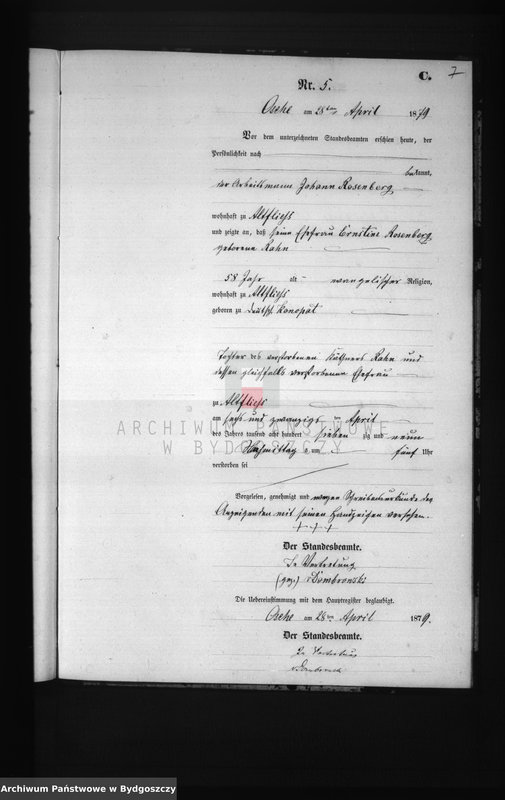 C.
7
Nr. 5.
Osche am 28ten April 1879
Vor dem unterzeichneten Standesbeamten erschien heute, der
Persönlichkeit nach
bekannt,
der Arbeitsmann Johann Rosenberg
wohnhaft zu Altfließ
und zeigte an, daß seine Ehefrau Ernstine Rosenberg
geborene Rahn
58 Jahr alt evangelischer Religion,
wohnhaft zu Altfließ
geboren zu Deutsch Konopat
Tochter des verstorbenen Käthners Rahn und
dessen gleichfalls verstorbenen Ehefrau
zu Altfließ
am sechs und zwanzigsten April
des Jahres tausend acht hundert sieben zig und neun
Nachmittag s um fünf Uhr
verstorben sei
Vorgelesen, genehmigt und wegen Schreibensunkunde des
Anzeigenden mit seinen Handzeichen versehen.
+ + +
Der Standesbeamte.
In Vertretung
(gez.) v Dombrowski
Die Uebereinstimmung mit dem Hauptregister beglaubigt.
Osche am 28ten April 1879.
Der Standesbeamte.
In Vertretung
ARCHIWUM PAŃSTWOWE
W BYDGOSZCZY
Archiwum Państwowe w Bydgoszczy